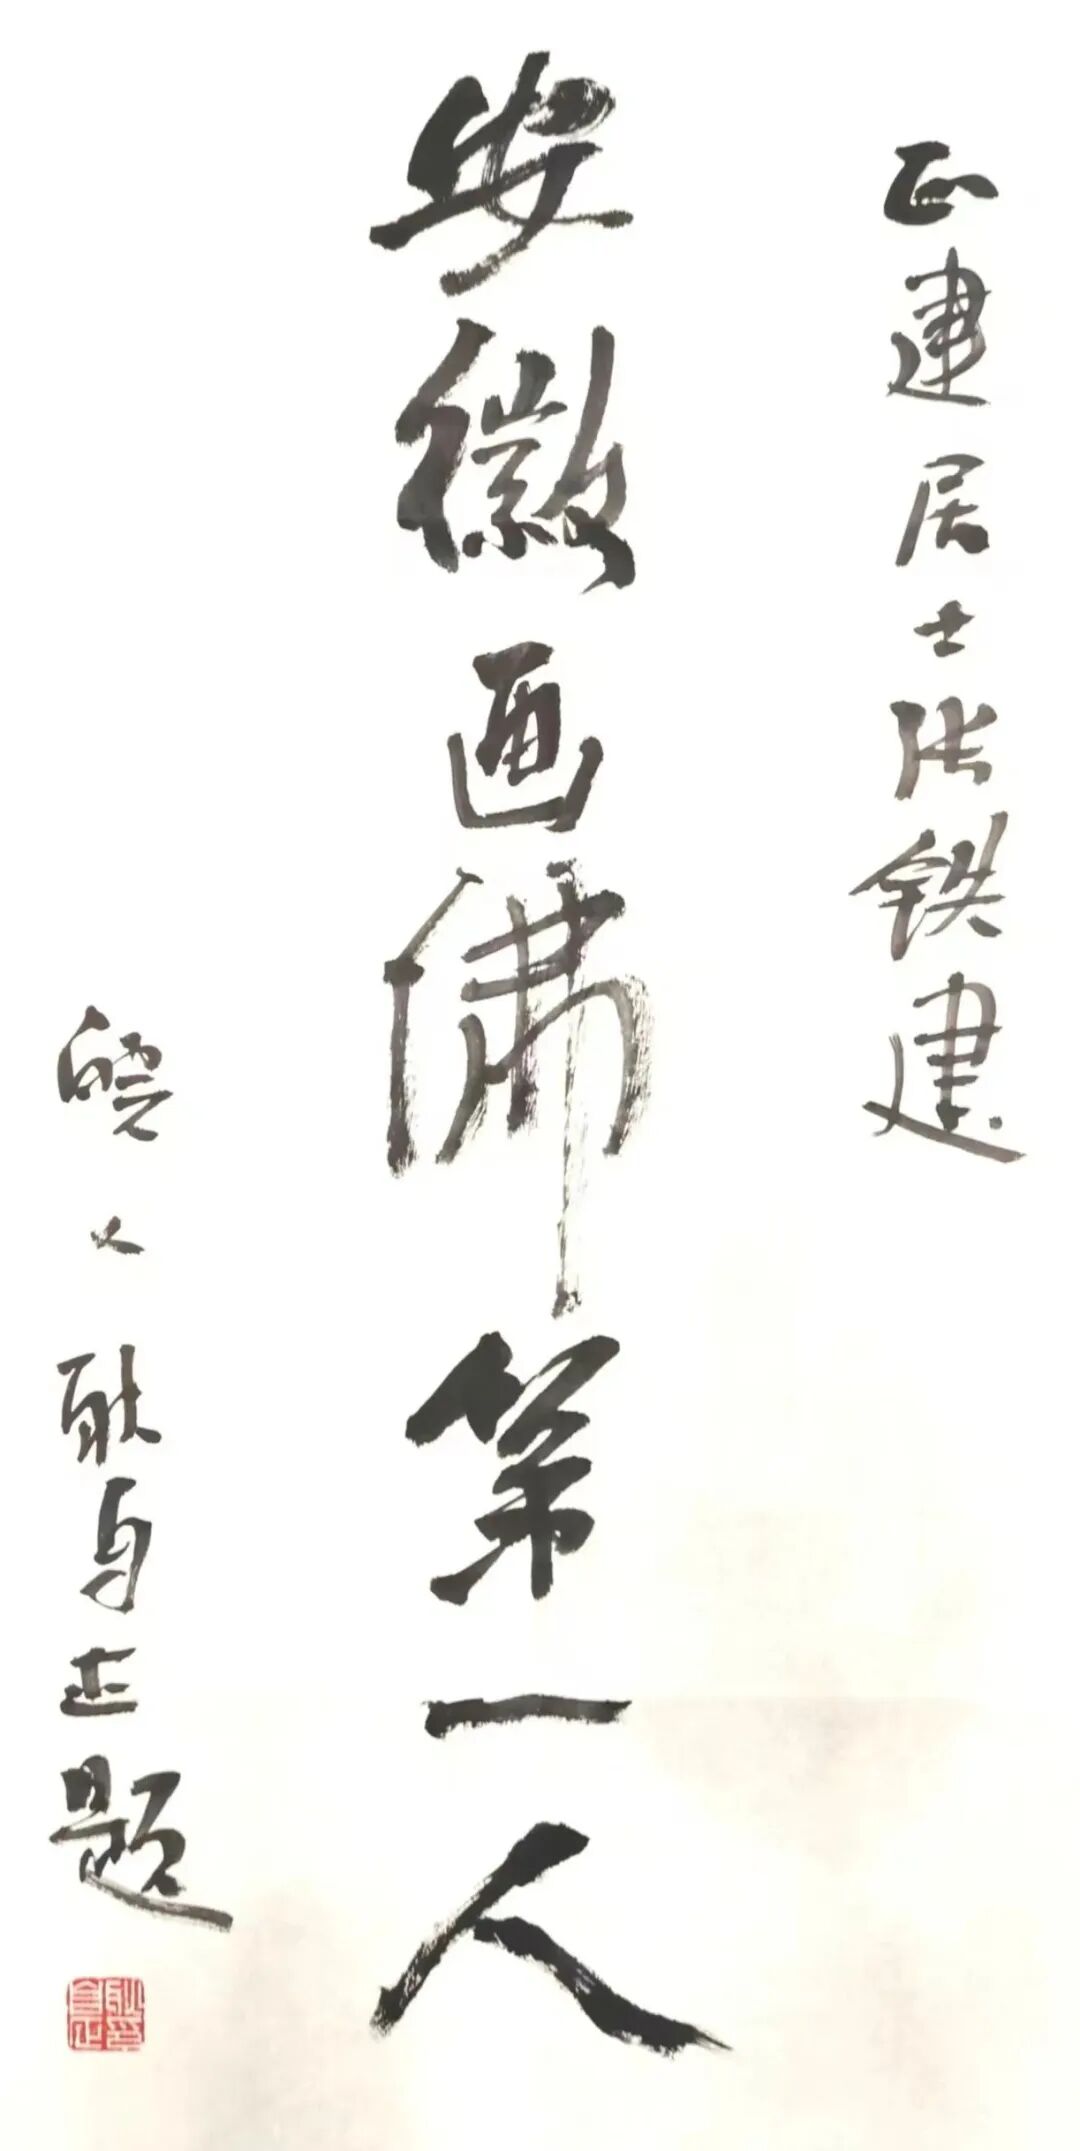 正建居士张铁建
安徽画佛第一人
人耿题